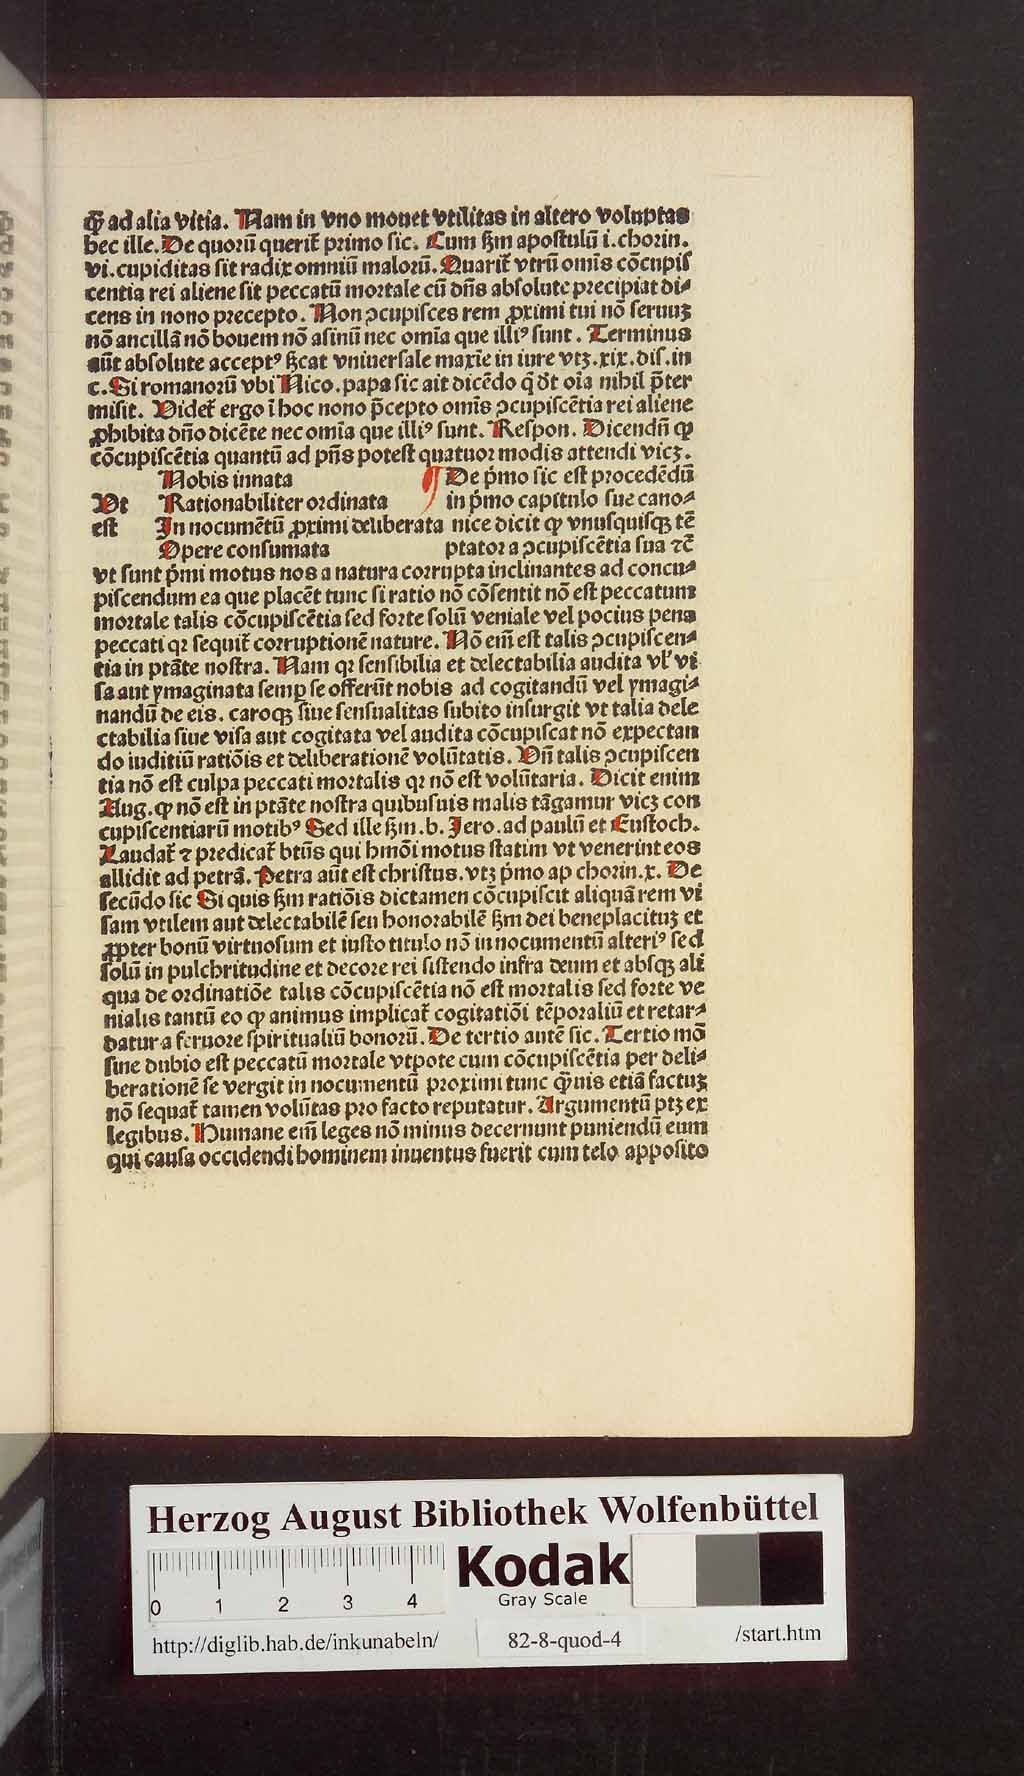 ꝙ̃ ad alia vitia. Nam in vno monet vtilitas in altero voluptas
hec ille. De quorū querit᷑ primo sic. Cum ẜm apostolū i. chorin.
vi. cupiditas sit radix omniū malorū. Quarit᷑ vtrū omīs cōcupis
centia rei aliene sit peccatū mortale cū dn̄s absolute precipiat di⸗
cens in nono precepto. Non ꝯcupisces rem ꝓximi tui nō seruuꝫ
nō ancillā nō bouem nō asinū nec omīa que illiꝰ sunt. Terminus
aūt absolute acceptꝰ ẜcat vniuersale maxīe in iure vtꝫ. xix. dis. in
c. Si romanorū vbi Nico. papa sic ait dicēdo q̄ dt̄ oīa nihil p̄ter
misit. Videt᷑ ergo ī hoc nono p̄cepto omīs ꝯcupiscētia rei aliene
ꝓhibita dn̄o dicēte nec omīa que illiꝰ sunt. Respon. Dicendū ꝙ
cōcupiscētia quantū ad pn̄s potest quatuor modis attendi vicꝫ.
Nobis innata ¶ De pͥmo sic est procedēdū
Vt Rationabiliter ordinata in pͥmo capitulo sue cano⸗
est In nocumētū ꝓximi deliberata nice dicit ꝙ vnusquisqꝫ tē
Opere consumata ptator a ꝯcupiscētia sua ⁊c̄
vt sunt pͥmi motus nos a natura corrupta inclinantes ad concu⸗
piscendum ea que placēt tunc si ratio nō cōsentit nō est peccatum
mortale talis cōcupiscētia sed forte solū veniale vel pocius pena
peccati qꝛ sequit᷑ corruptionē nature. Nō eīm est talis ꝯcupiscen⸗
tia in ptāte nostra. Nam qꝛ sensibilia et delectabilia audita vl̓ vi
sa aut ymaginata semꝑ se offerūt nobis ad cogitandū vel ymagi⸗
nandū de eis. caroqꝫ siue sensualitas subito insurgit vt talia dele
ctabilia siue visa aut cogitata vel audita cōcupiscat nō expectan
do iuditiū ratiōis et deliberationē volūtatis. Vn̄ talis ꝯcupiscen
tia nō est culpa peccati mortalis qꝛ nō est volūtaria. Dicit enim
Aug. ꝙ nō est in ptāte nostra quibusuis malis tāgamur vicꝫ con
cupiscentiarū motibꝰ Sed ille ẜm. b. Jero. ad paulū et Eustoch.
Laudat᷑ ⁊ predicat᷑ btūs qui hmōi motus statim vt venerint eos
allidit ad petrā. Petra aūt est christus. vtꝫ pͥmo ap chorin. x. De
secūdo sic Si quis ẜm ratiōis dictamen cōcupiscit aliquā rem vi
sam vtilem aut delectabilē seu honorabilē ẜm dei beneplacituꝫ et
ꝓpter bonū virtuosum et iusto titulo nō in nocumentū alteriꝰ sed
solū in pulchritudine et decore rei sistendo infra deum et absqꝫ ali
qua de ordinatiōe talis cōcupiscētia nō est mortalis sed forte ve
nialis tantū eo ꝙ animus implicat᷑ cogitatiōi tēporaliū et retar⸗
datur a feruore spiritualiū bonorū. De tertio autē sic. Tertio mō
sine dubio est peccatū mortale vtpote cum cōcupiscētia per deli⸗
berationē se vergit in nocumentū proximi tunc ꝙ̄uis etiā factuꝫ
nō sequat᷑ tamen volūtas pro facto reputatur. Argumentū ptꝫ ex
legibus. Humane eīm leges nō minus decernunt puniendū eum
qui causa occidendi hominem inuentus fuerit cum telo apposito
Herzog August Bibliothek Wolfenbüttel
0 1 2 3 4
Kodak
Gray Scale
http://diglib.hab.de/inkunabeln/ 82-8-quod-4 /start.htm